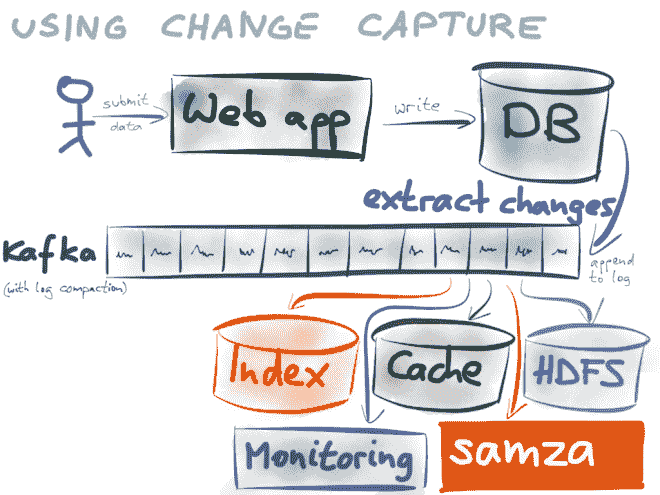 USING CHANGE CAPTURE
submit
data
Web app
write
DB
extract changes
Kafka
(with log compaction)
append
to log
Index
Cache
HDFS
Monitoring
samza